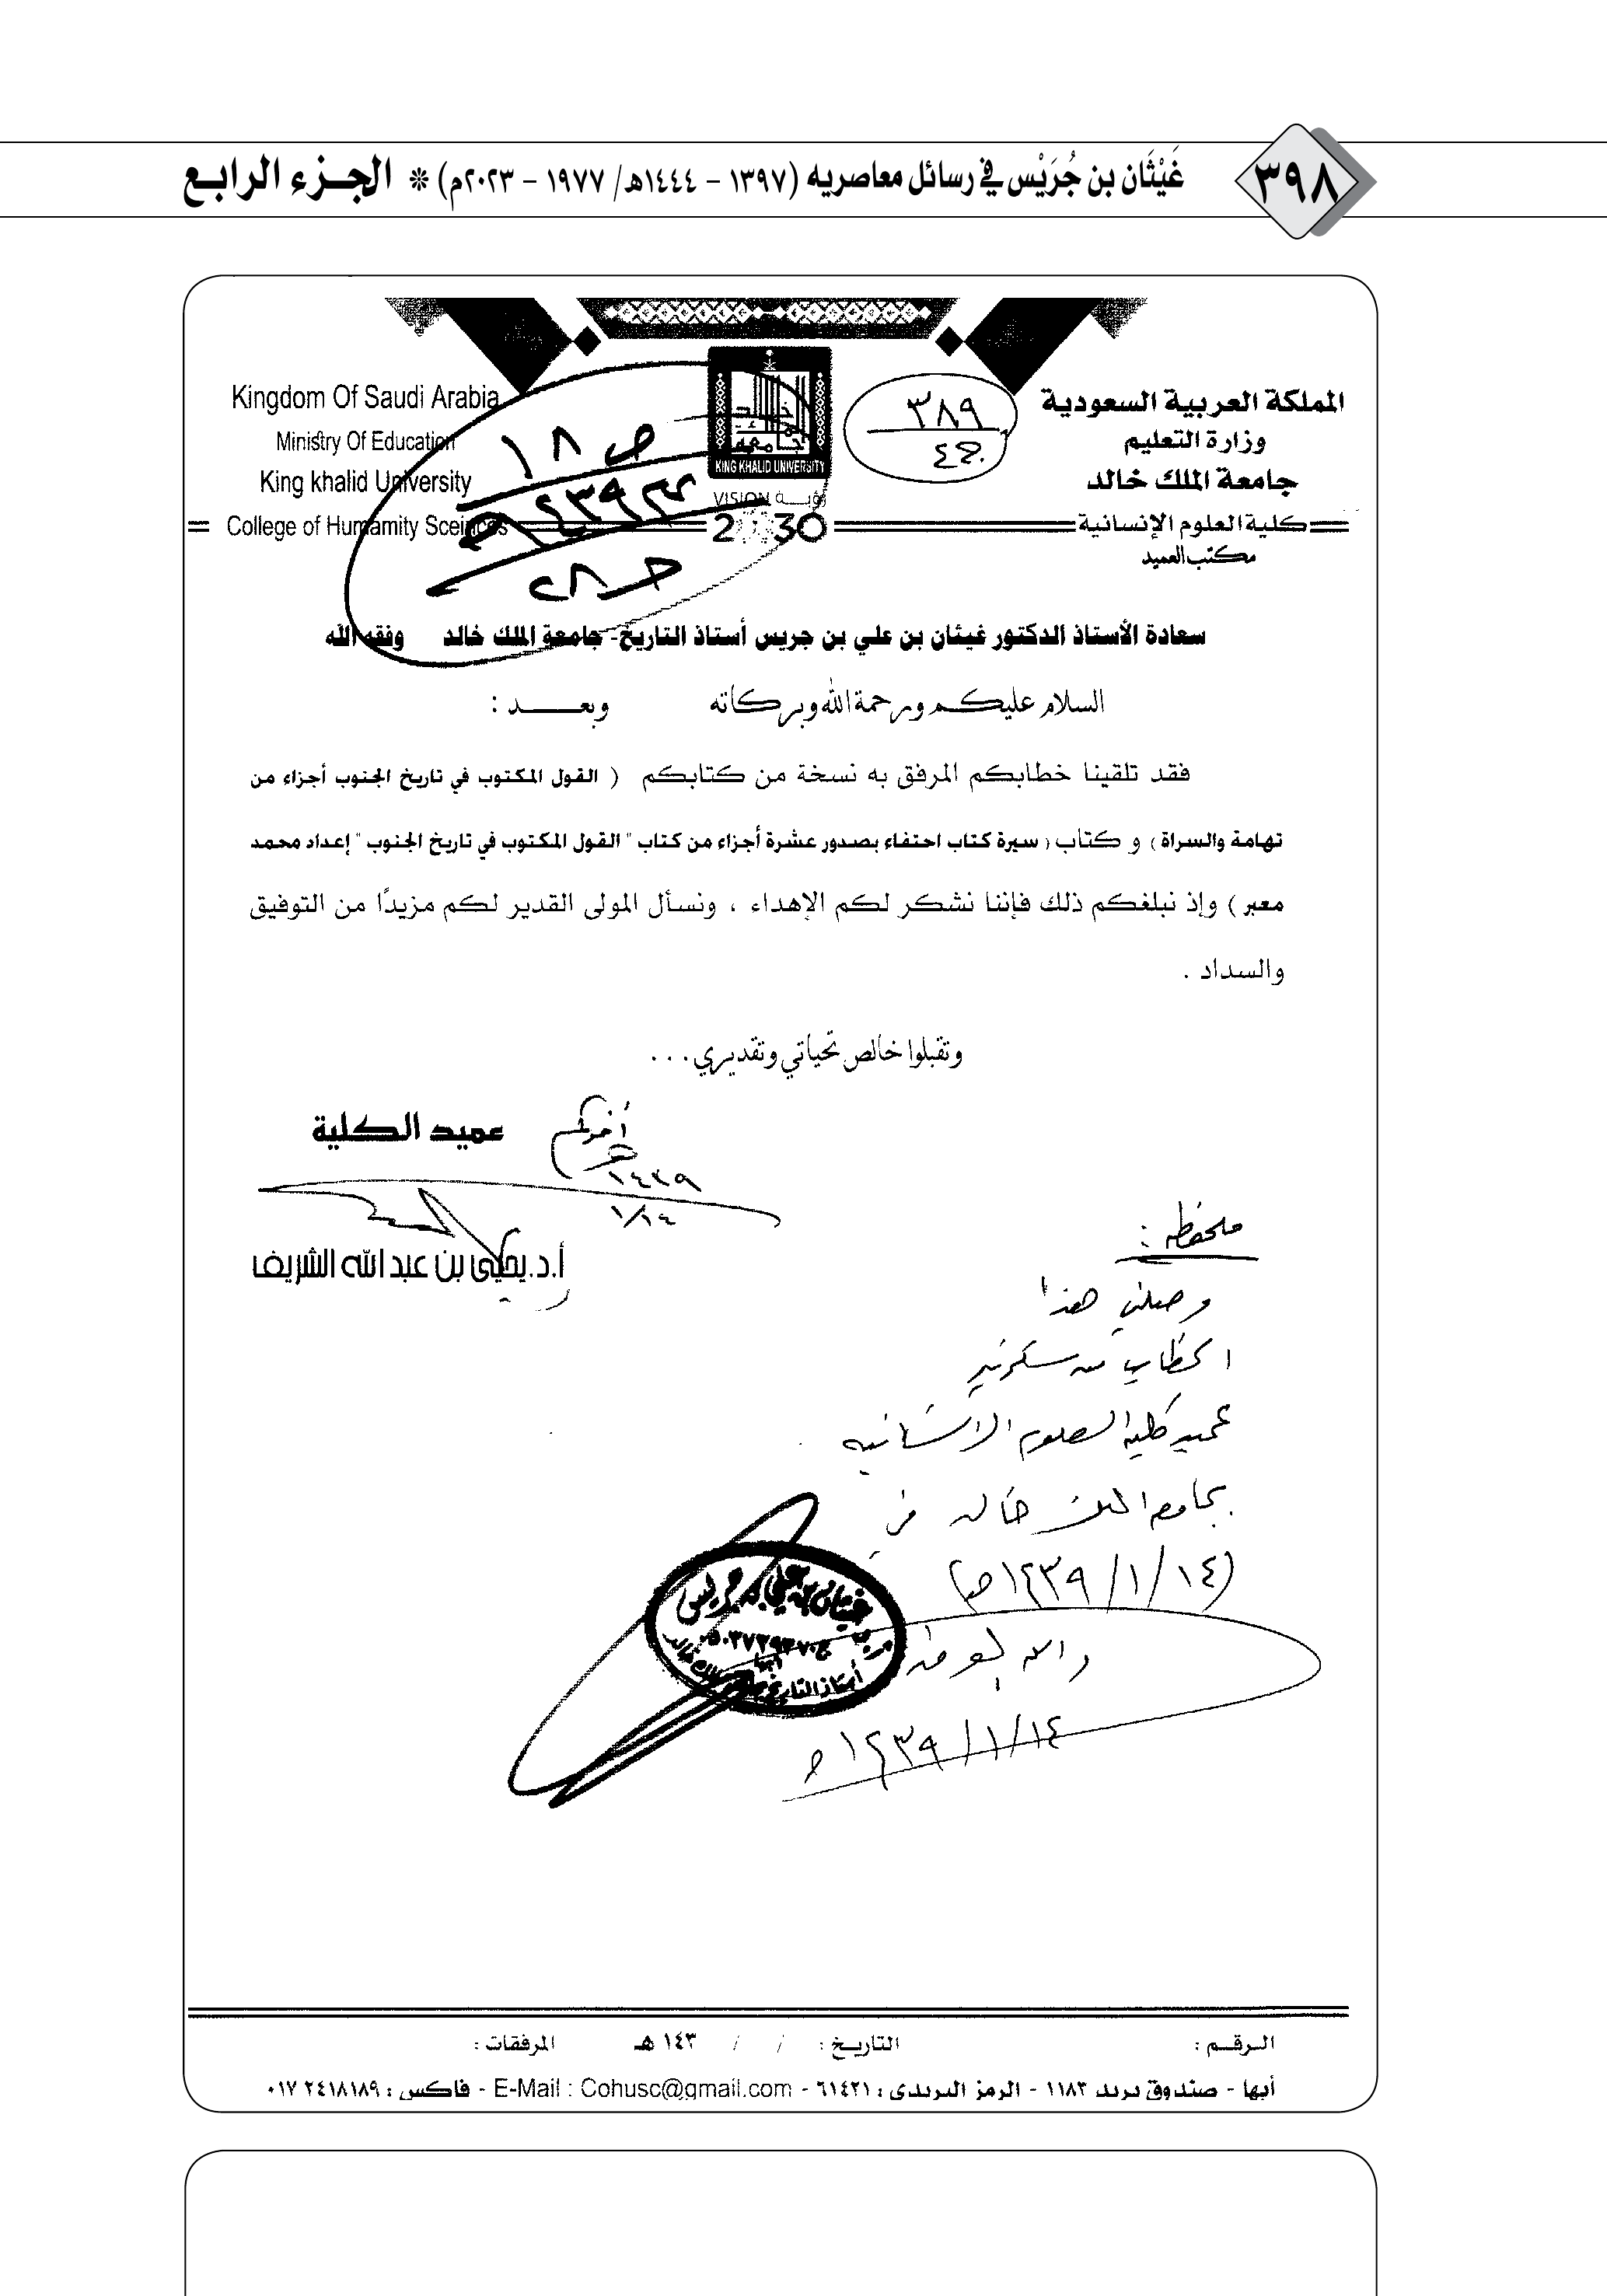 ٣٩٨
غَيْثَان بن جُرَيْس في رسائل معاصريه (١٣٩٧ - ١٤٤٤هـ/ ١٩٧٧ - ٢٠٢٣م) * الجـزء الرابـع
المملكة العربية السعودية
وزارة التعليم
جامعة الملك خالد
كلية العلوم الإنسانية
مكتب العميد
٣٨٩
ج٤
KING KHALID UNIVERSITY
VISION رؤيــة
2030
Kingdom Of Saudi Arabia
Ministry Of Education
King khalid University
College of Humamity Sceinces
ص ١٨
١٤٣٩هـ
سعادة الأستاذ الدكتور غيثان بن علي بن جريس أستاذ التاريخ- جامعة الملك خالد وفقه الله
السلام عليكم ورحمة الله وبركاته وبعــــد :
فقد تلقينا خطابكم المرفق به نسخة من كتابكم ( القول المكتوب في تاريخ الجنوب أجزاء من
تهامة والسراة ) و كتاب ( سيرة كتاب احتفاء بصدور عشرة أجزاء من كتاب " القول المكتوب في تاريخ الجنوب " إعداد محمد
معبر ) وإذ نبلغكم ذلك فإننا نشكر لكم الإهداء ، ونسأل المولى القدير لكم مزيدًا من التوفيق
والسداد .
وتقبلوا خالص تحياتي وتقديري...
عميد الكلية
أخوكم
١٤٣٩
١/١٤
أ.د.يحيى بن عبدالله الشريف
ملحفظه :
وصلني هذا
الخطاب من سكرتير
عميد كلية العلوم الانسانيه
بجامعة الملك خالد في
(١٤/١/١٤٣٩هـ)
والله الموفق
١٤/١/١٤٣٩هـ
غيثان بن علي بن جريس
أبها
أستاذ التاريخ بجامعة الملك خالد
الـرقـم : التاريـخ : / / ١٤٣ هـ المرفقات :
أبها - صندوق بريد ١١٨٣ - الرمز البريدي : ٦١٤٢١ - E-Mail : Cohusc@gmail.com - فاكس : ٠١٧ ٢٤١٨١٨٩